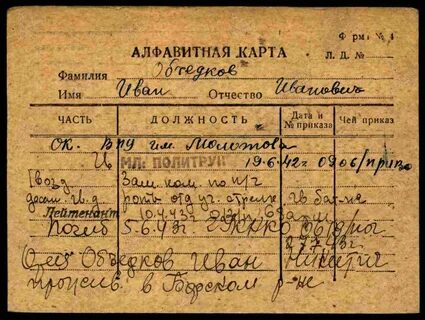 Форма № 4
АЛФАВИТНАЯ КАРТА
Л. Д. №
Фамилия Объедков
Имя Иван Отчество Иванович
ЧАСТЬ ДОЛЖНОСТЬ Дата и № приказа Чей приказ
Ок. ВПУ им. Молотова
МЛ. ПОЛИТРУК 19.6.42г 0906/
Гвозд. Зам. ком. по п/ч
роты отд уч. стрелк. гв. бат-на
Лейтенант 10.4.43г
Погиб 5.6.43г
27.7.43г.
Отец Объедков Иван
прожив. в Борском р-не